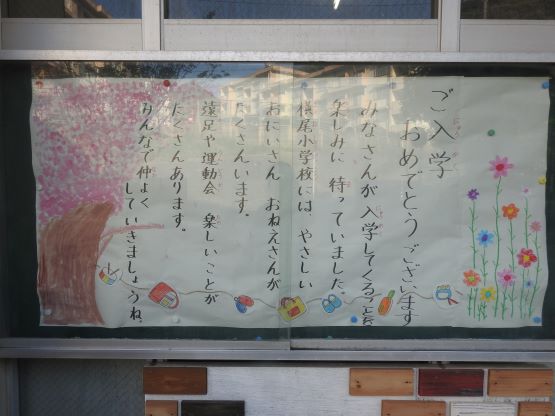 ご入学
おめでとうございます
みなさんが入学してくることを
楽しみに待っていました。
横尾小学校には、やさしい
おにいさん おねえさんが
たくさんいます。
遠足や運動会 楽しいことが
たくさんあります。
みんなで仲よく
していきましょうね。